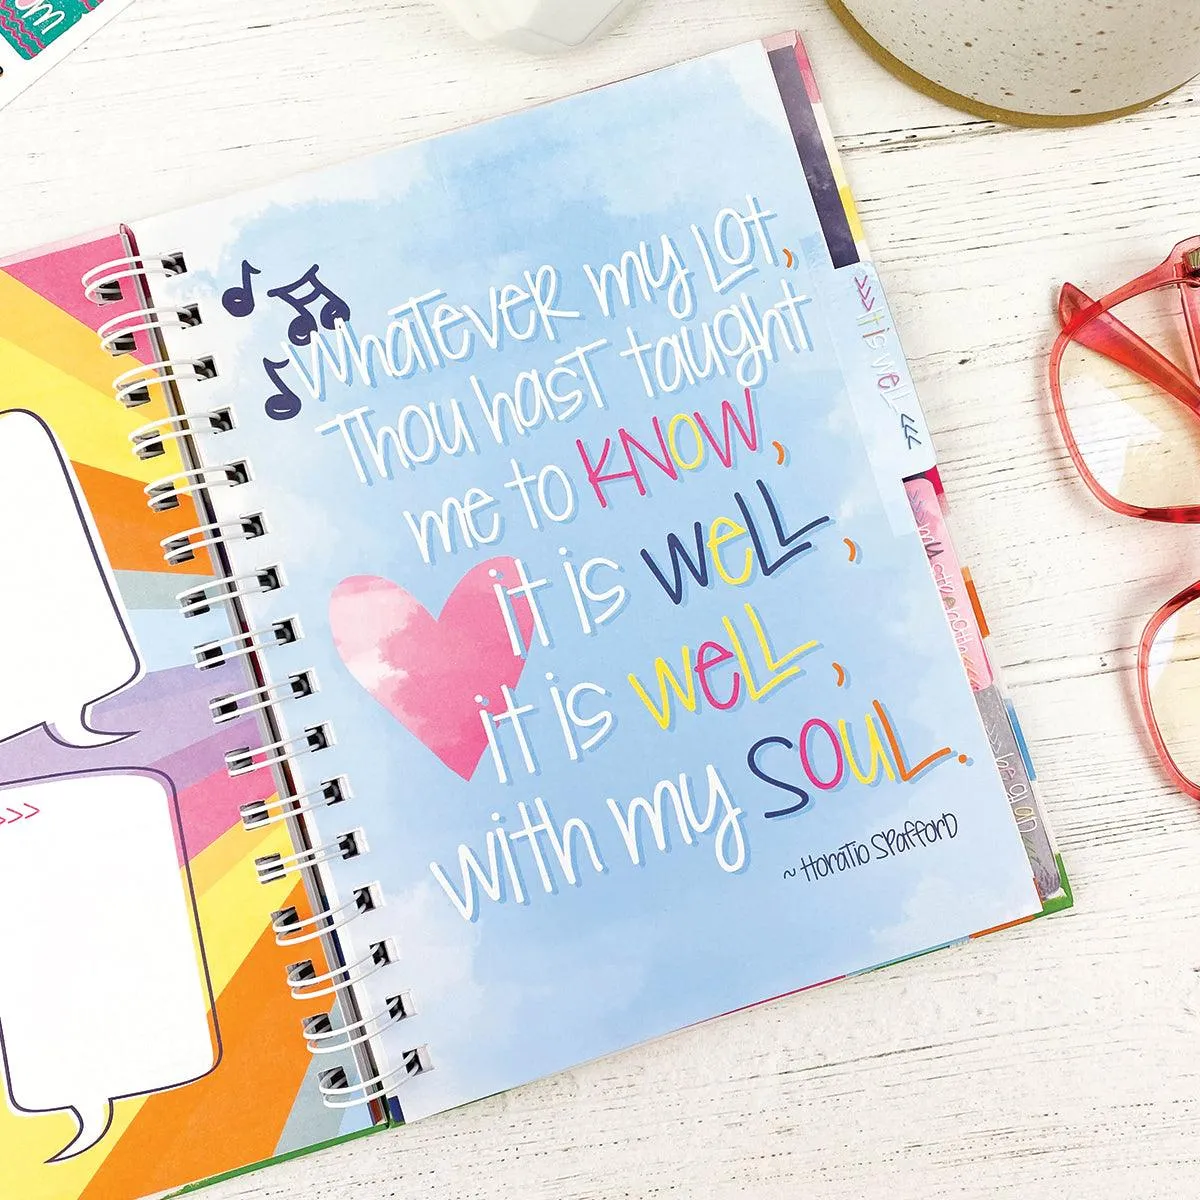 Whatever my lot,
Thou hast taught
me to KNOW,
it is well,
it is well,
with my soul.
~ Horatio Spafford
>>> it is well <<<
>>> my strength <<<
>>> be glad <<<
>>>